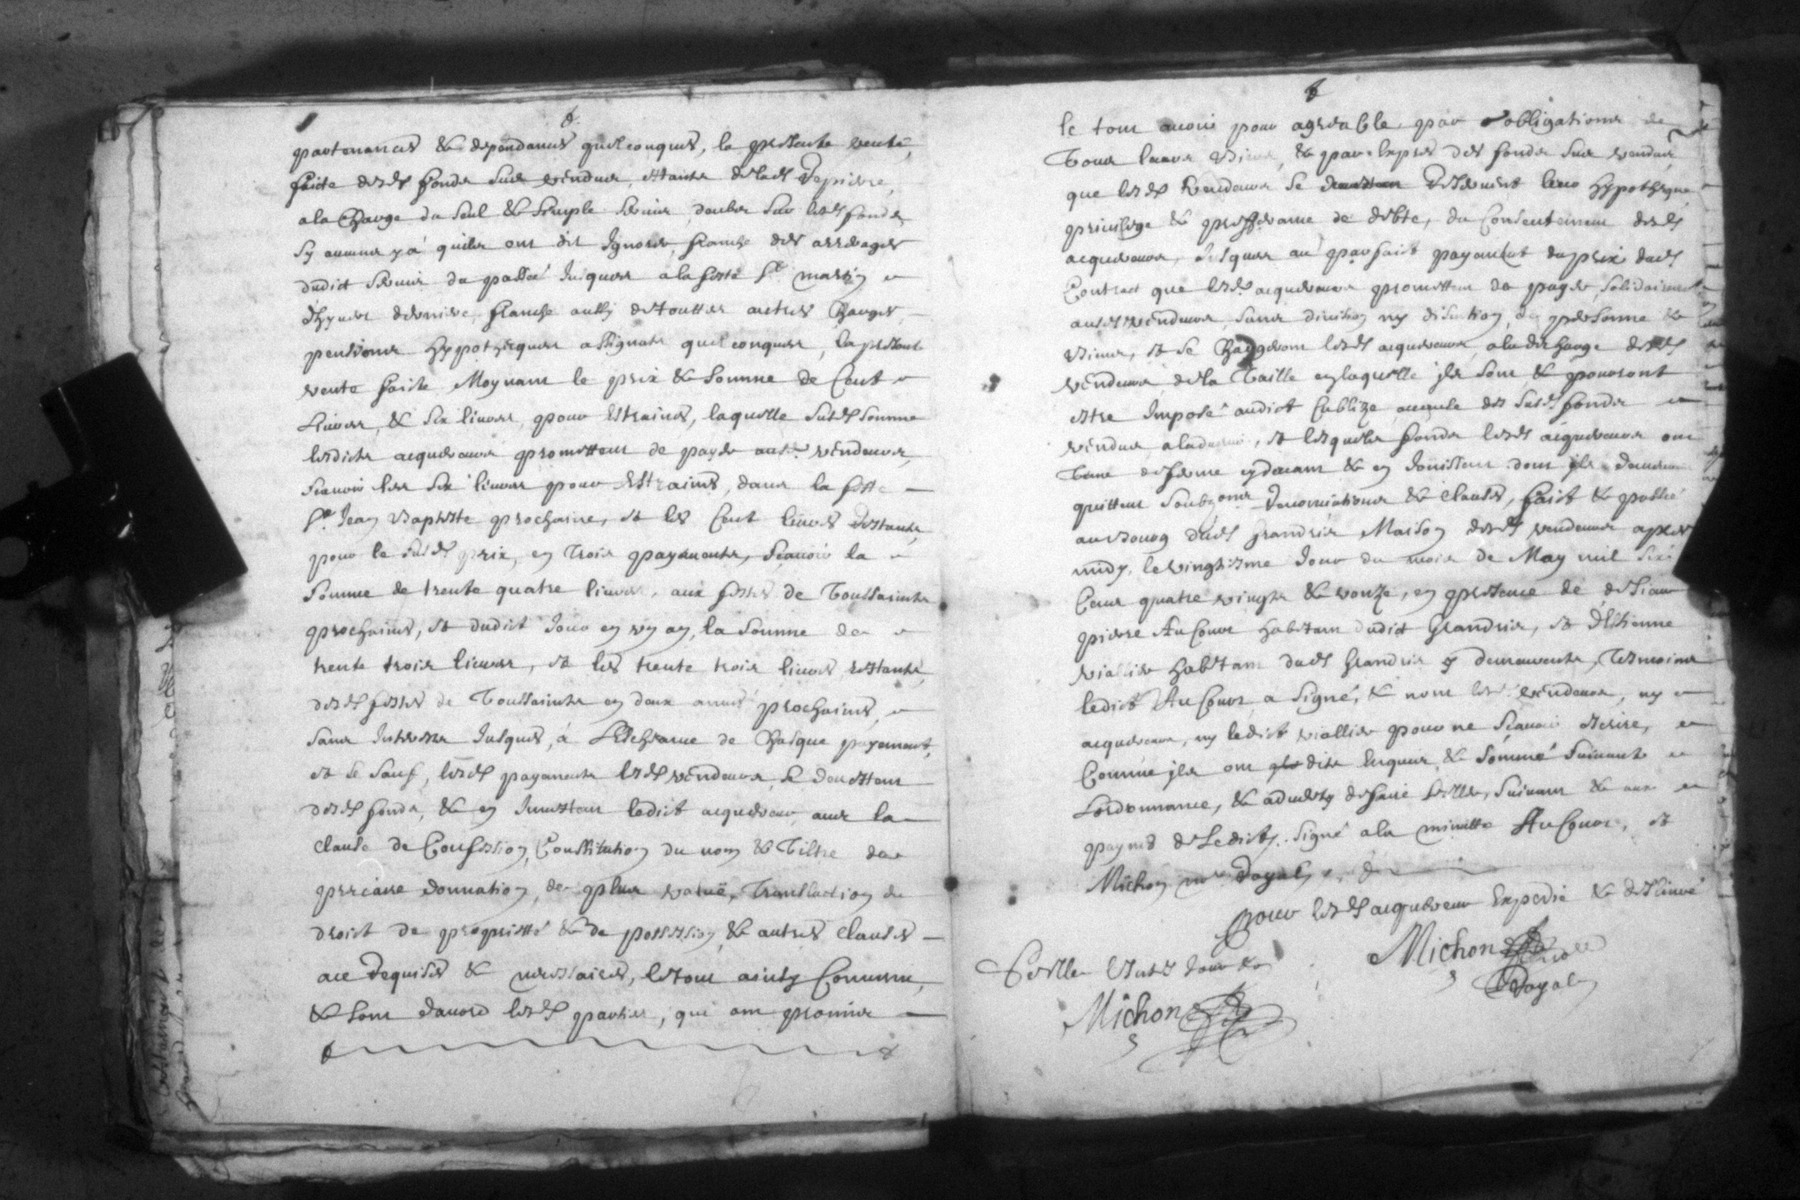 partenances & dependances quelconques, la presente vente,
faicte desds fonds sus vendus, estants de lads
a la charge du seul & simple servis deubs sur lesds fonds
sy aucuns y a quils ont dit ignorer franche des arrerages
dudict servis du passé jusques a la feste St martin
d'hyver derniere, franche aussy de touttes autres charges,
pensions hypotheques assignats quelconques, la presente
vente faicte Moynant le prix & somme de Cent
Livres, & six livres pour estraines, laquelle susds somme
lesdicts acquereurs promettent de payer ausds vendeurs,
scavoir les six livres pour estraines, dans la feste
St Jean Baptiste prochaine, et les Cent livres restants,
pour le susds prix, en trois payements, scavoir la
somme de trente quatre livres, aux festes de Toussaincts
prochaines, et dudict jour en un an, la somme de
trente trois livres, et les trente trois livres restants,
desds festes de Toussaincts en deux années prochaines,
sans interestz jusques, à L'escheance de chasque payement,
et se sauf, lesds payements lesds vendeurs se devestent
desds fonds, & en investent ledict acquereur avec la
clause de Confession, Constitution du nom & Tiltre de
precaire donnation, de plus value, Translaction de
droict de proprietté & de possession & autres clauses
ace requises & necessaires, le tout ainsy Convenu,
& sont d'accord lesds parties, qui ont promis
le tout avoir pour agreable par obligations de
Tous leurs Biens, & par expres des fonds sus vendus
que lesds vendeurs se reservent leur hypotheque
privilege & prefferance de debte, du Consentement desds
acquereurs, jusques au parfaict payement du prix duds
Contract que lesds acquereurs promettent de payer, solidairement
ausds vendeurs, sans division ny discution, de personne &
Biens, et se chargeront lesds acquereurs, a la descharge desds
vendeurs de la Taille en laquelle ils sont & pourront
estre imposé audict Cublize, acause des susds fonds
vendus a ladvenir, et lesquels fonds lesds acquereurs ont
tenu de ferme cydevant & en jouissent dont ils demeurent
quittes soubzmis Renonciations & clauses, faict & passé
au Bourg duds Grandris Maison desds vendeurs apres
midy, le vingtiesme jour du mois de May mil six
Cens quatre vingts & unze, en presence de
pierre AuCour habitant dudict Grandris, et d'Estienne
viallier habitant duds Grandris y demeurants, tesmoins
ledict AuCour a signé, & non lesds vendeurs, ny
acquereurs, ny ledict viallier pour ne scavoir escrire,
Comme ils ont dit Enquis, & sommé suivant
L'ordonnance, & advertis de faire seller, suivant & aux
paynes de L'edict, signé a la minutte AuCour, et
Michon nore Royal
Pour lesds acquereurs Expedié & deslivré
Michon nore
Royal
Michon